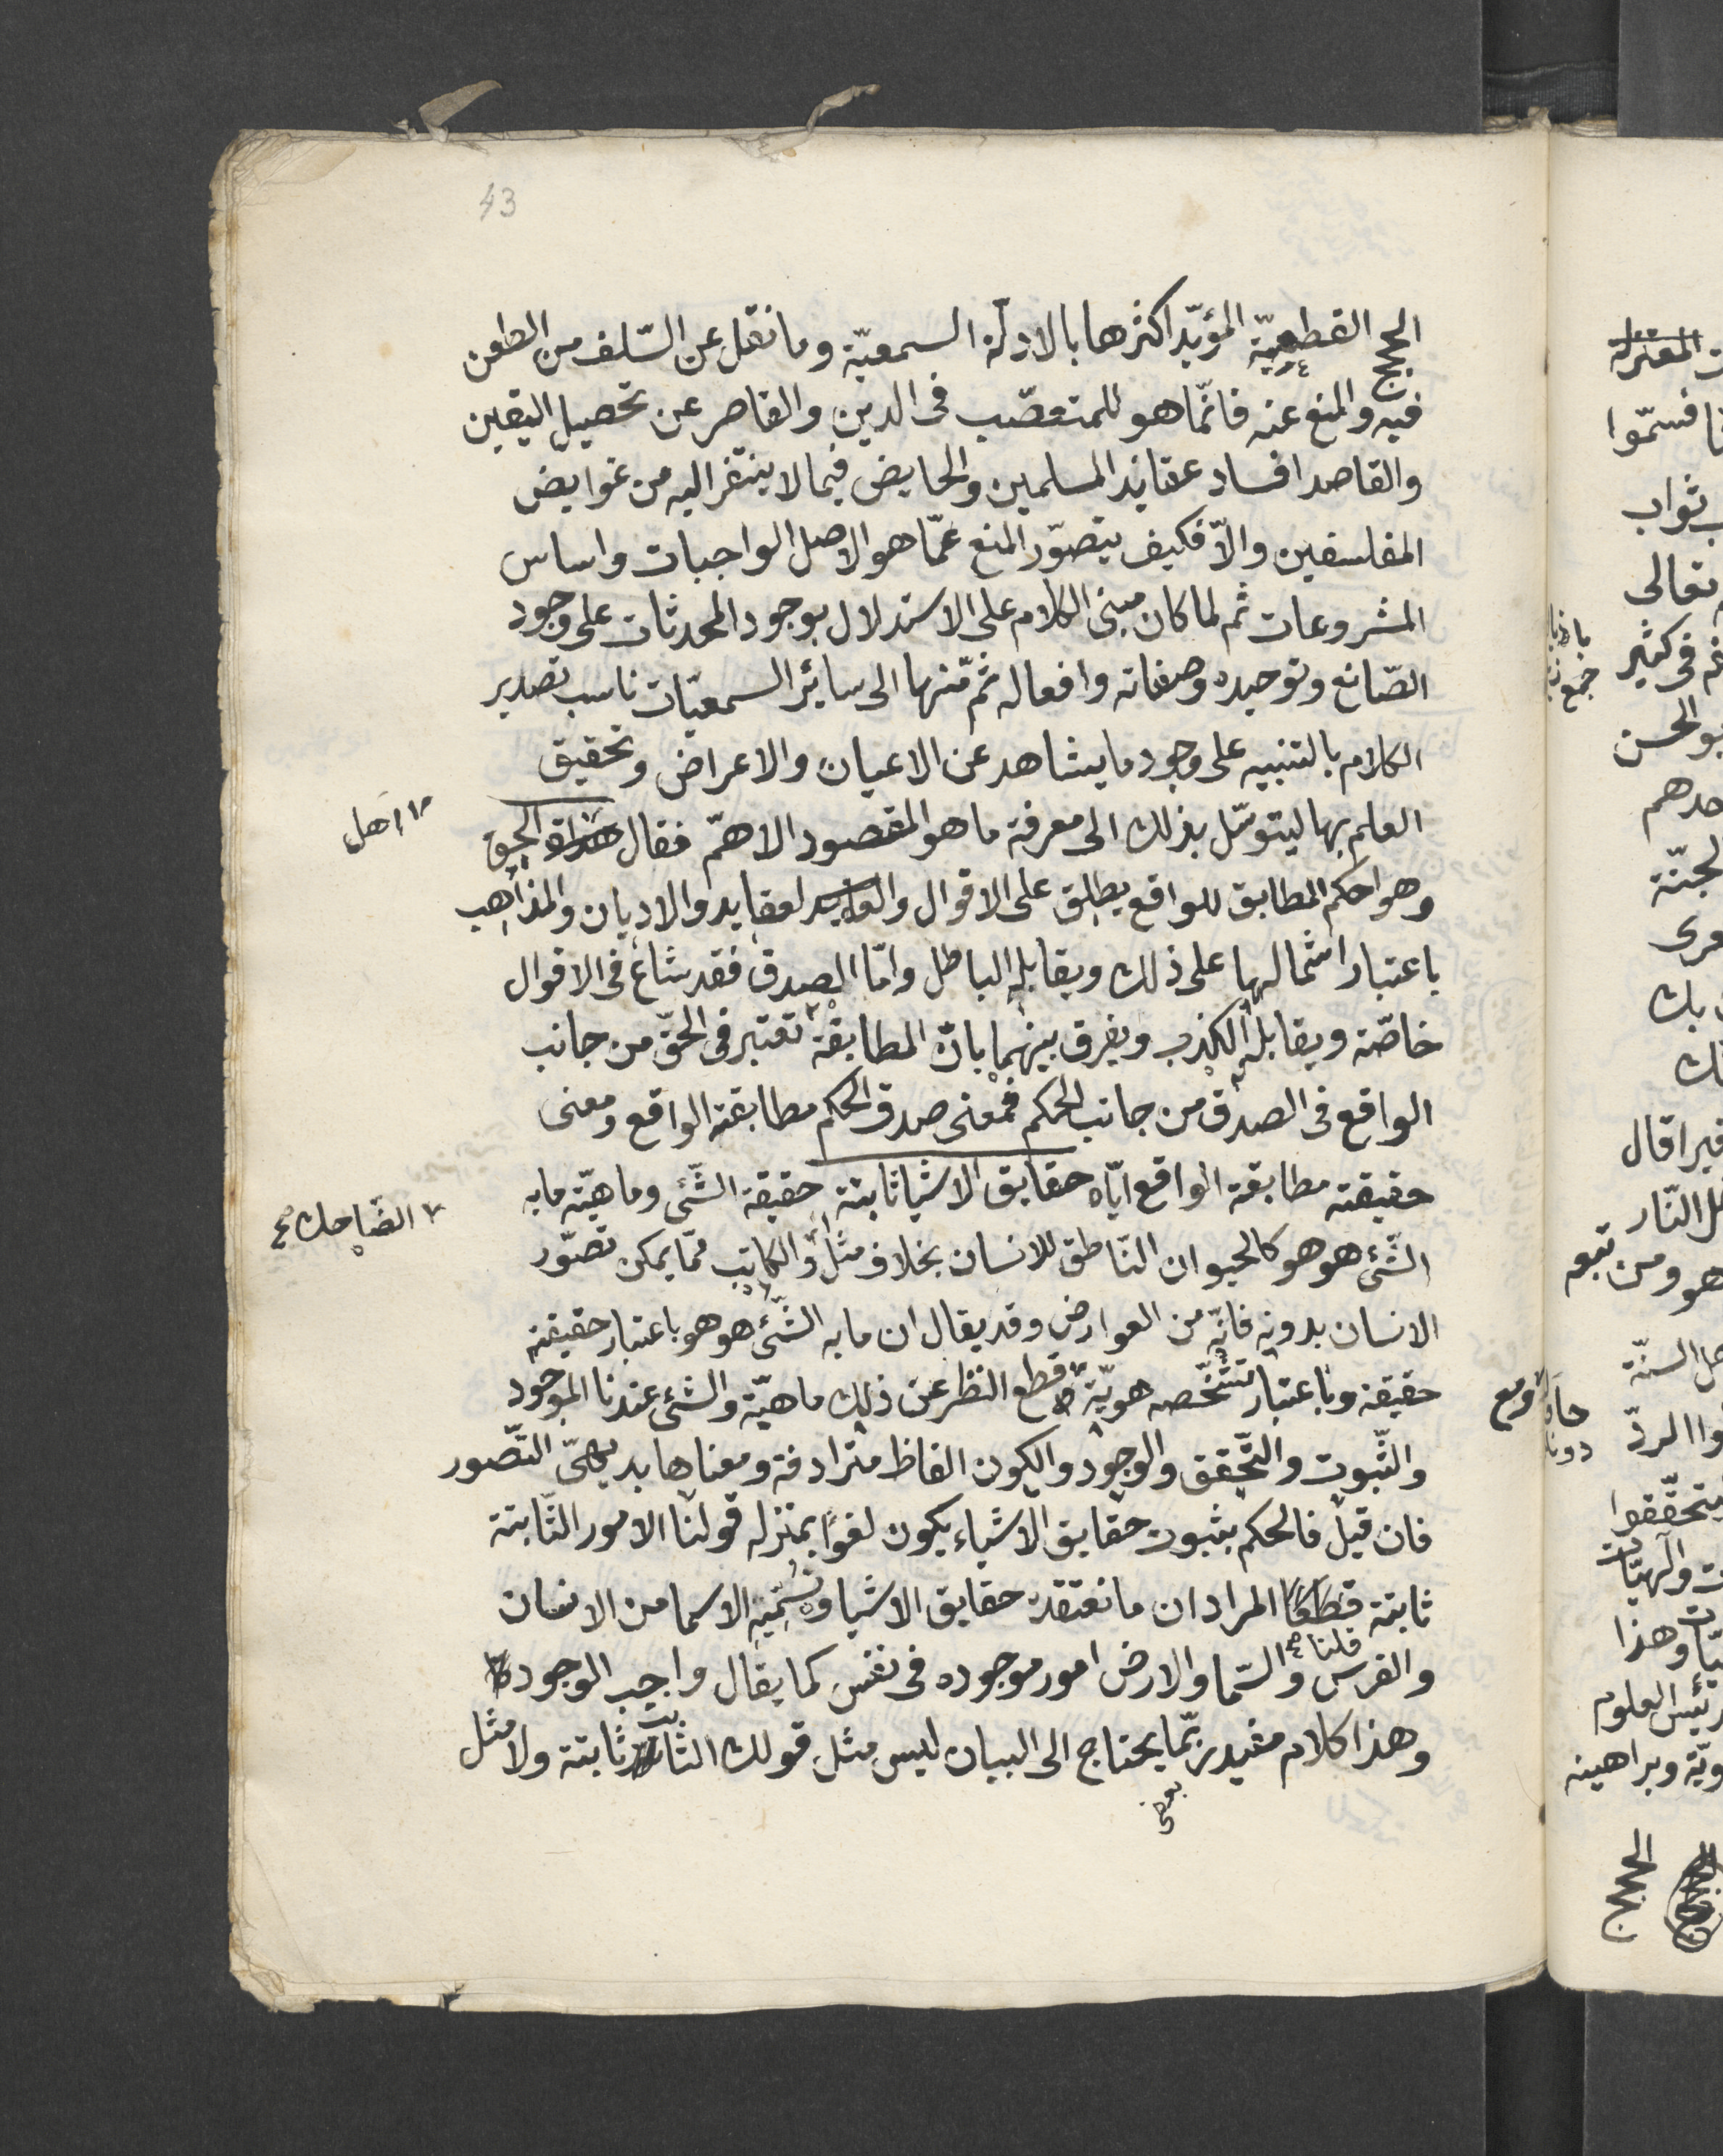 43
الحجج القطعيّة المؤيّد اكثرها بالادلّة السمعيّة وما نقل عن السّلف من الطعن
فيه والمنع عنه فانّما هو للمتعصّب فى الدين والقاصر عن تحصيل اليقين
والقاصد افساد عقايد المسلمين والخايض فيما لا يفتقر اليه من غوايض
المفلسفين والّا فكيف يتصوّر المنع عمّا هو الاصل الواجبات واساس
المشروعات ثم لما كان مبنى الكلام على الاستدلال بوجود المحدثات على وجود
الصّانع وتوحيده وصفاته وافعاله ثم منها الى سائر السمعيّات ناسب تصدير
الكلام بالتنبيه على وجود ما يشاهد عن الاعيان والاعراض وتحقيق
العلم بها ليتوسّل بذلك الى معرفة ما هو المقصود الاهمّ فقال الحق
اهل
وهو احكم المطابق للواقع يطلق على الاقوال والعقايد والاديان والمذاهب
باعتبار اشمالها على ذلك ويقابله الباطل وامّا الصدق فقد شاع فى الاقوال
خاصّة ويقابله الكذب ويفرق بينهما بانّ المطابقة تعتبر فى الحقّ من جانب
الواقع فى الصدق من جانب الحكم فمعنى صدق الحكم مطابقة الواقع ومعنى
حقيقته مطابقة الواقع ايّاه حقايق الاشيا ثابتة حقيقة الشّئ وماهيّة ما به
الضّاحك صح
الشّئ هو هو كالحيوان النّاطق للانسان بخلاف مثل والكاتب ممّا يمكن تصوّر
الانسان بدونه فانّه من العوارض وقد يقال ان ما به الشّئ هو هو باعتبار حقيقته
حقيقة وباعتبار تشخّصه هويّة قطع النظر عن ذلك ماهيّة والشئ عندنا الموجود
ومع
والثّبوت والتّحقق والوجود والكون الفاظ مترادفة ومعناها بديهىّ التّصور
فان قيل فالحكم بثبوت حقايق الاشياء يكون لغوا بمنزله قولنا الامور الثّابتة
ثابتة المراد ان ما نعتقدة حقايق الاشيا ونسمّيه الاسما من الانسان
قلنا صح
والفرس والسّما والارض امور موجوده فى نفس كما يقال واجب الوجود
وهذا كلام مفيد ربّما يحتاج الى البيان ليس مثل قولك الثابت ثابتة ولا مثل